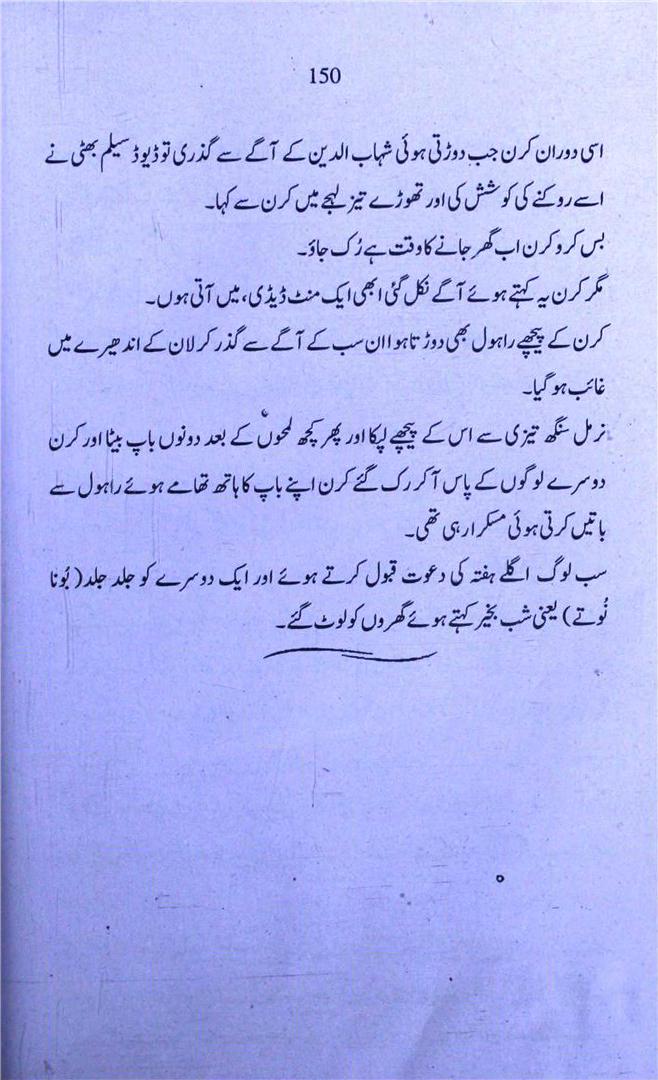 150
اسی دوران کرن جب دوڑتی ہوئی شہاب الدین کے آگے سے گذری تو ڈیوڈ سیلم بھٹی نے
اسے روکنے کی کوشش کی اور تھوڑے تیز لہجے میں کرن سے کہا۔
بس کرو کرن اب گھر جانے کا وقت ہے رُک جاؤ۔
مگر کرن یہ کہتے ہوئے آگے نکل گئی ابھی ایک منٹ ڈیڈی، میں آتی ہوں۔
کرن کے پیچھے راہول بھی دوڑتا ہوا ان سب کے آگے سے گذر کر لان کے اندھیرے میں
غائب ہو گیا۔
نرمل سنگھ تیزی سے اس کے پیچھے لپکا اور پھر کچھ لمحوں کے بعد دونوں باپ بیٹا اور کرن
دوسرے لوگوں کے پاس آ کر رک گئے کرن اپنے باپ کا ہاتھ تھامے ہوئے راہول سے
باتیں کرتی ہوئی مسکرا رہی تھی۔
سب لوگ اگلے ہفتہ کی دعوت قبول کرتے ہوئے اور ایک دوسرے کو جلد جلد (بُونا
نُوتے) یعنی شب بخیر کہتے ہوئے گھروں کو لوٹ گئے۔